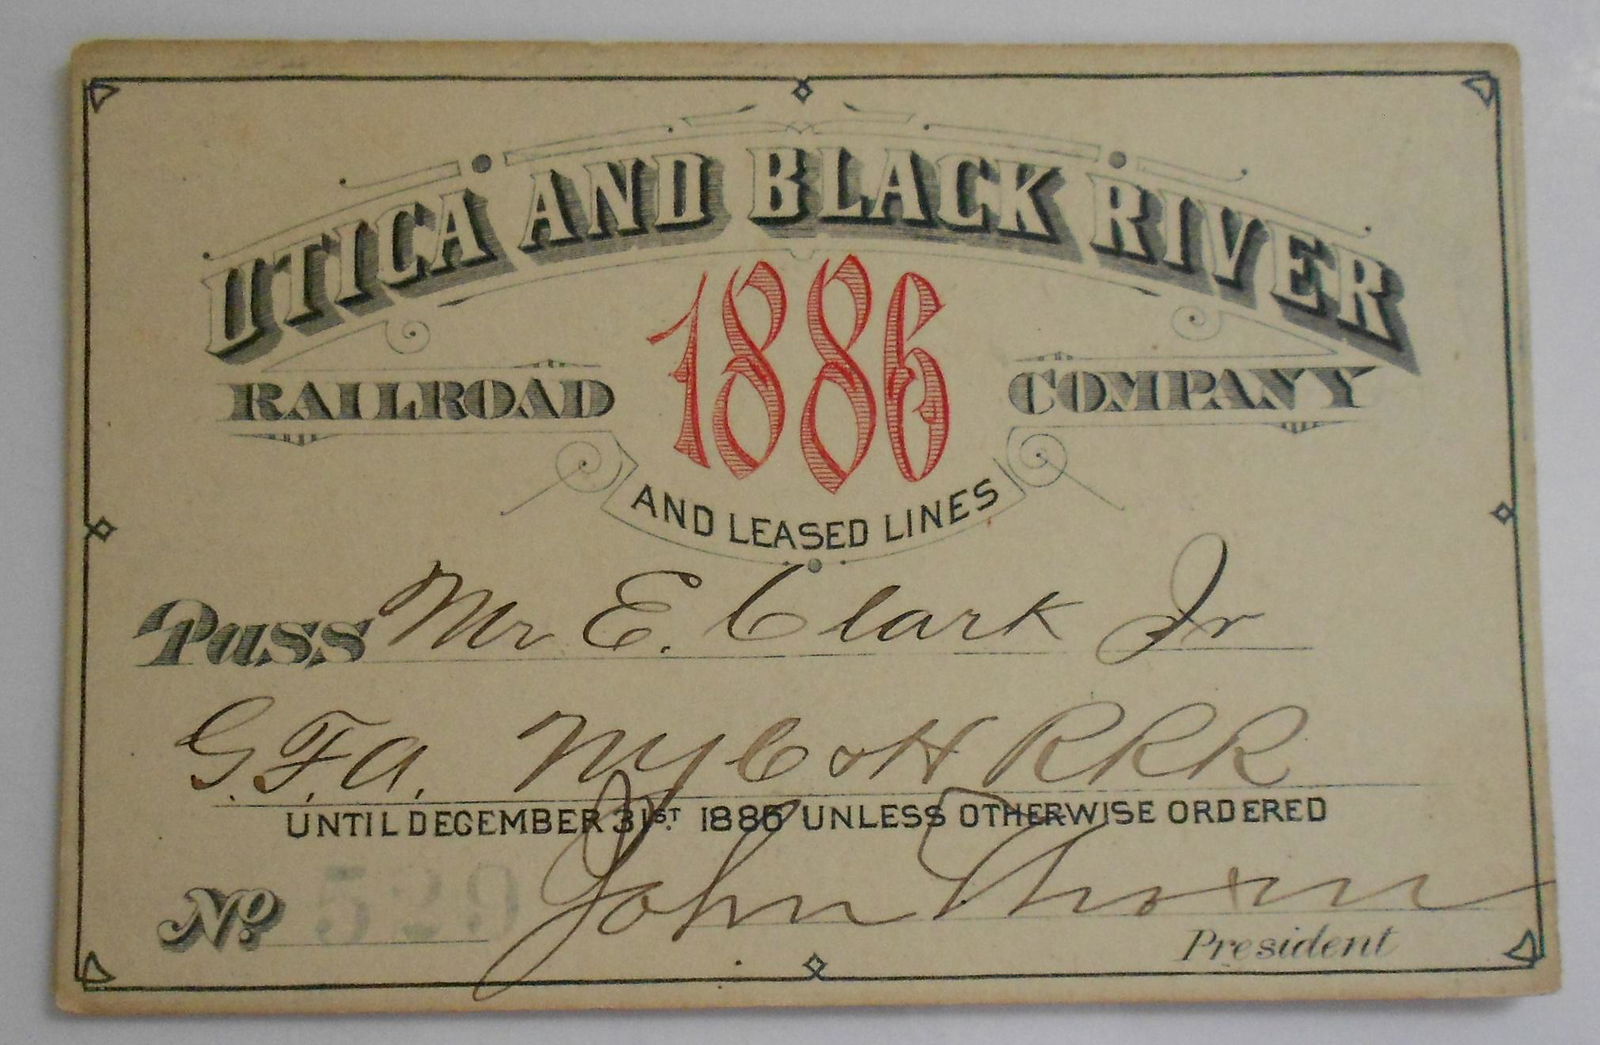 UTICA AND BLACK RIVER
RAILROAD 1886 COMPANY
AND LEASED LINES
Pass Mr E. Clark Jr
G.F.A. NYC & H RRR
UNTIL DECEMBER 31ST. 1886 UNLESS OTHERWISE ORDERED
No. John Thorn
President